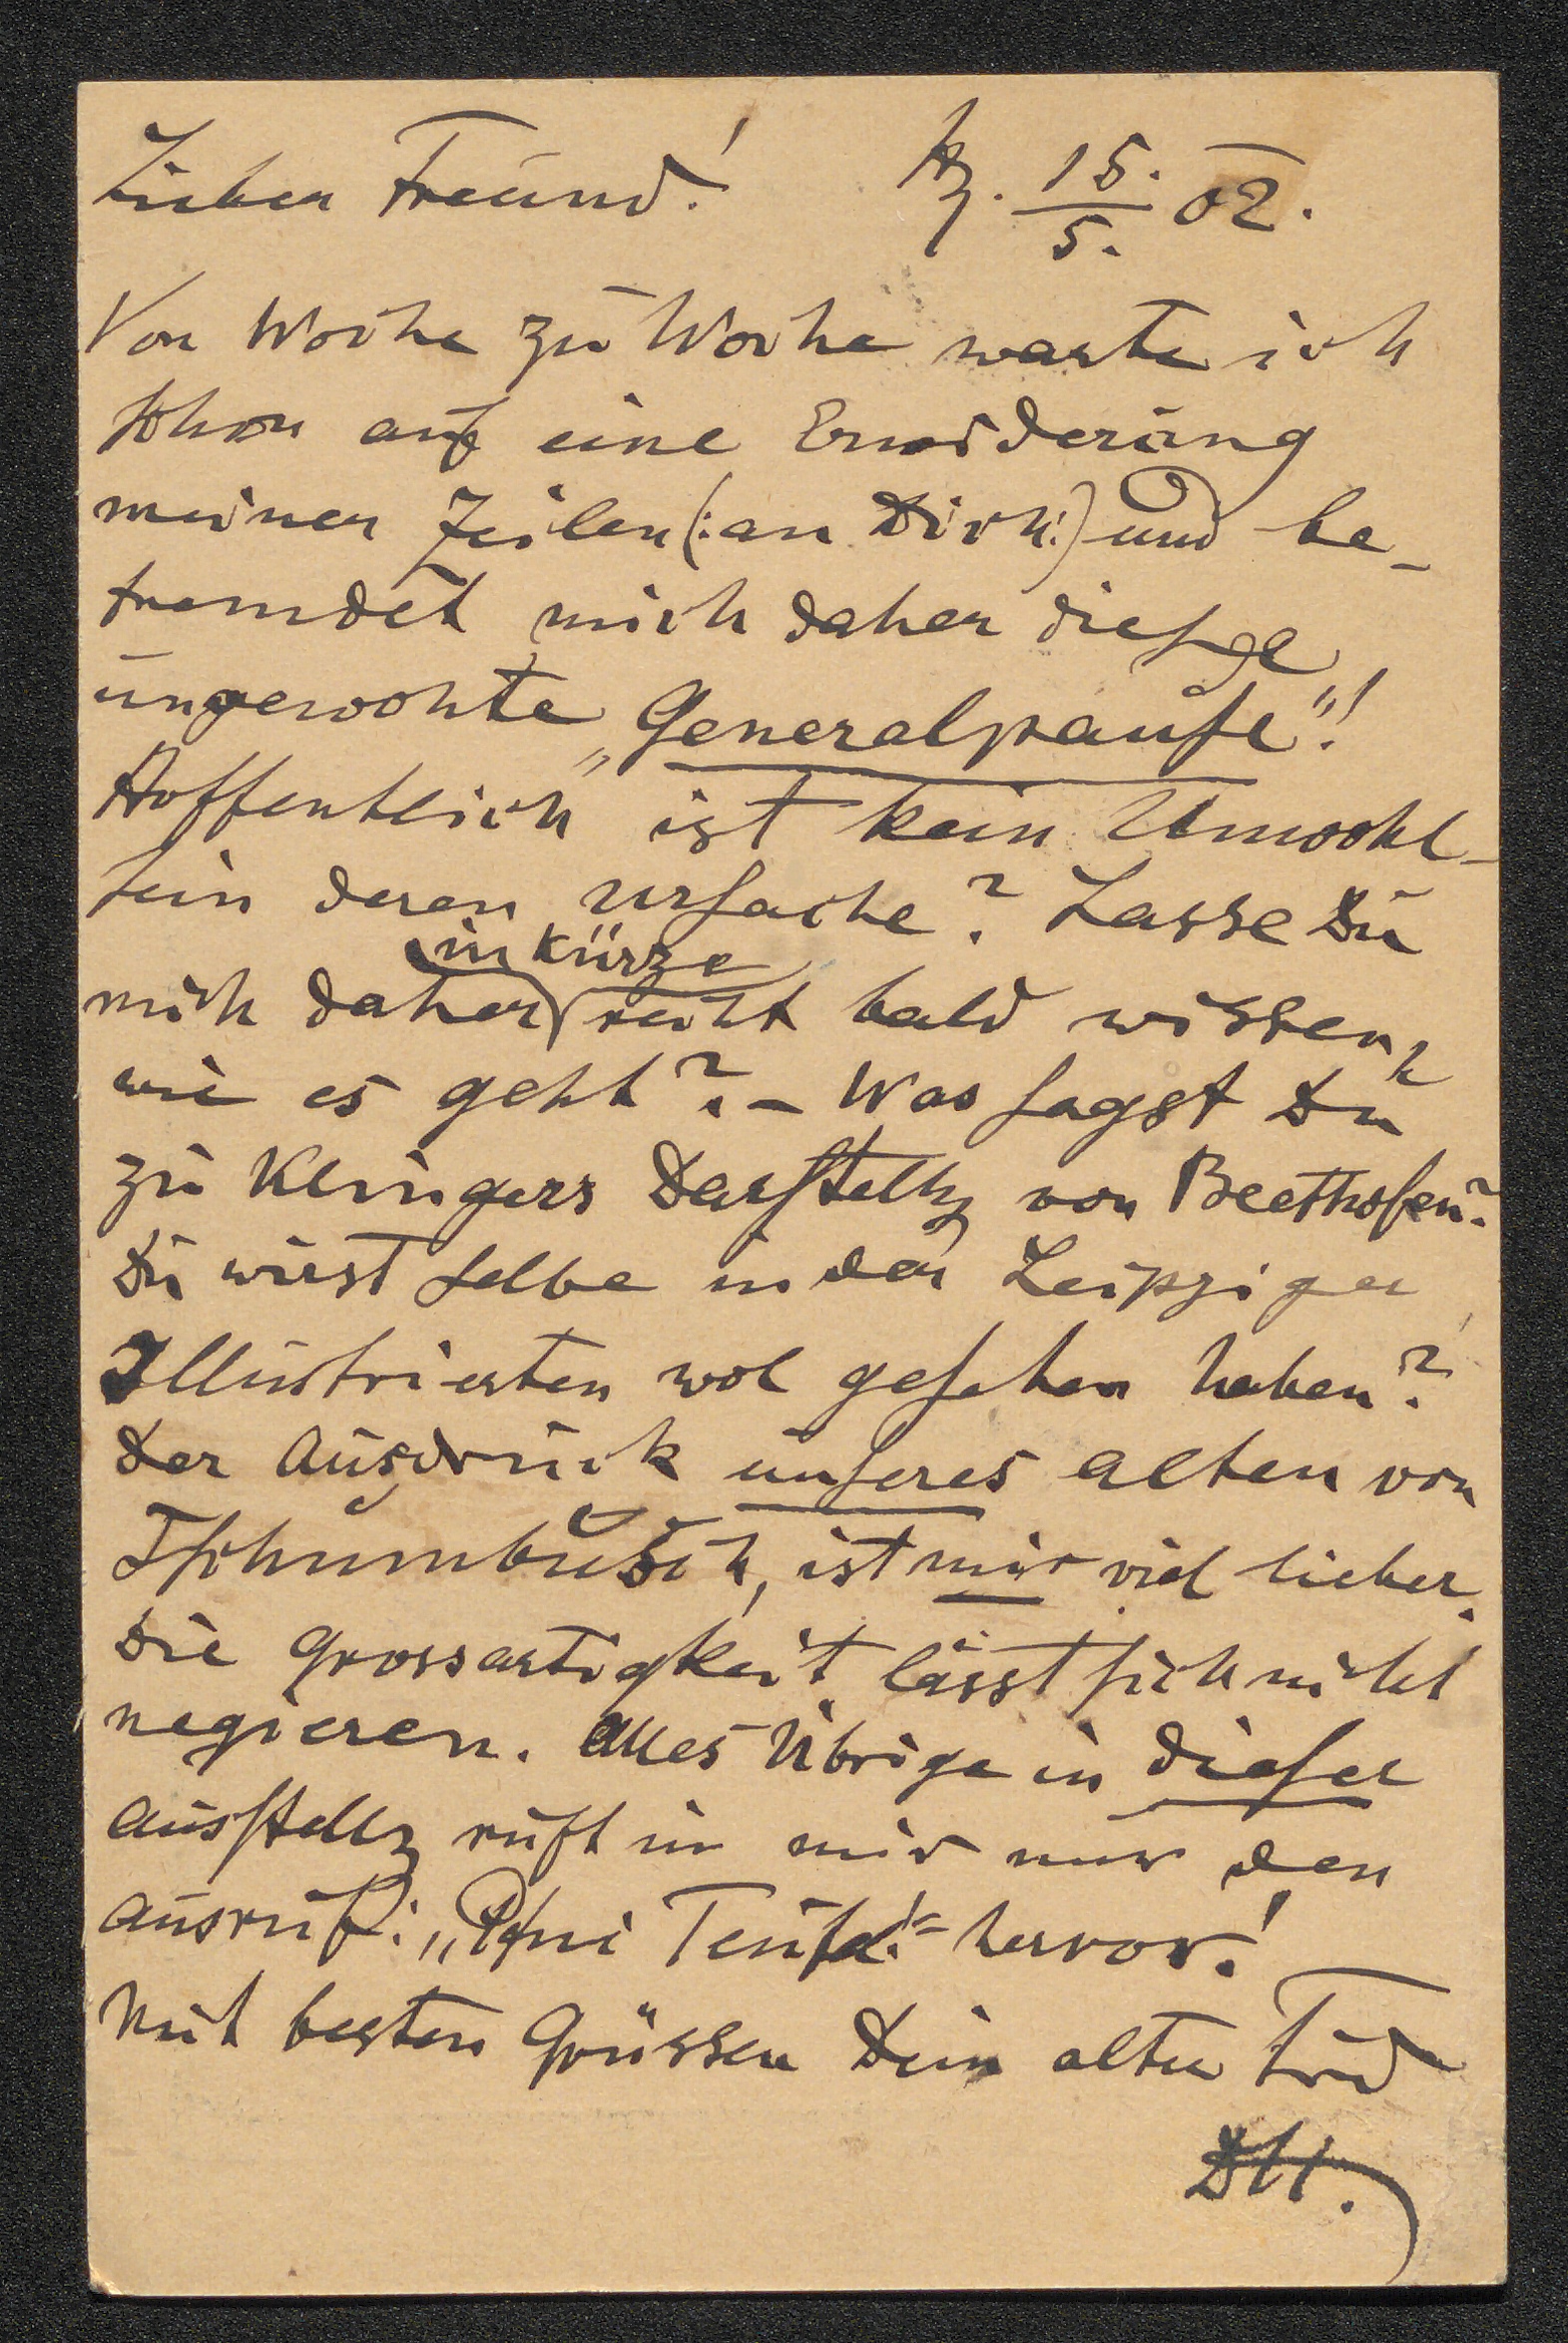 Lieber Freund! 15./5. 02.
Von Woche zu Woche warte ich
schon auf eine Erwiderung
meiner Zeilen (:an Dich:) und be-
fremdet mich daher diese
ungewohnte „Generalpause"!
Hoffentlich ist kein Unwohl-
sein deren Ursache? Lasse Du
in Kürze
mich daher recht bald wissen,
wie es geht? – Was sagst Du
zu Klingers Darstellg von Beethofen?
Du wirst selbe in der Leipziger
Illustrierten wol gesehen haben?
Der Ausdruck unseres alten von
ist mir viel lieber.
Die Grossartigkeit lässt sich nicht
negieren. Alles Übrige in dieser
Ausstellg ruft in mir nur den
Ausruf: „Pfui Teufel!" hervor!
Mit besten Grüssen Dein alter Frd
DH.